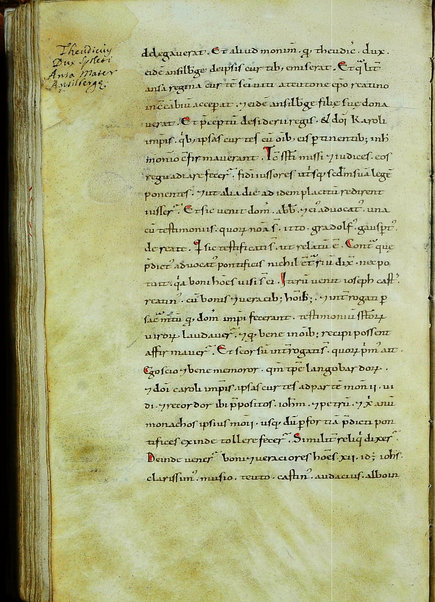 Theudicius
Dux Spoleti
Ansa Mater
Ansilbergę
delegauerat. Et aliud monim̅. q̅ theudic̅ dux
eidē ansilbgę deipsis curtib; emiserat. Et qlit̅
ansa regina curtē sc̅i uiti attutone ep̅o reatino
incābiū acceperat. &eidē ansilbgę filię suę dona
uerat. Et p̅ceptū desiderii regis. & do̅i Karoli
imp̅is. qb; ipsas curtes cū oīb; eis p̅tinentib; inh̅
monio c̅firmauerant. Tc̅ ss̅ti missi & iudices. eos
reguadiare fecer̅. fidiiussores utrisq; scdm̅ sua legē
ponentes. & ut alia die ad idem placitū redirent
iusser̅. Et sic uenit dom̅. abb̅. & ei; aduocat; una
cū testimoniis. quoꝝ no̅a s̅. itto. gradolf; gausp̅t;
de reate. Qi sic testificati s̅. ut relatū ē. Cont̅ que
p̅dict; aduocat; pontificis nichil c̅t̅riū dix̅. nec po
tuit. qa boni ho̅es uisi s̅ ei. Iterū uenit ioseph cast̅
reatin; cū bonis & ueracib; ho̅ib;. & int̅rogati p
sac̅m̅tū q̅ don̅ imp̅i fecerant. testimoniū ss̅toꝝ
uiroꝝ laudauer̅. & q̅ bene in oīb; recipi possent
affirmauer̅. Et seorsū int̅rogati s̅. quoꝝ p̅m; ait
Goscio & bene memoror. qm̅ tp̅e langobardoꝝ.
& do̅i caroli imp̅is. ipsas curtes ad parte mon̅ii. ui
di. & recordor ibi p̅positos. ioh̅m. & petrū. & xp̅ianū
monachos ipsius mon̅ii. usq; dū p̅ fortia p̅dicti pon
tifices exinde tollere fecer̅. Similit̅ reliq dixer̅.
Deinde uener̅ boni & ueraciores ho̅es. xii. id; ioh̅s.
clarissim; musio. teuto. castin; audacius. alboin